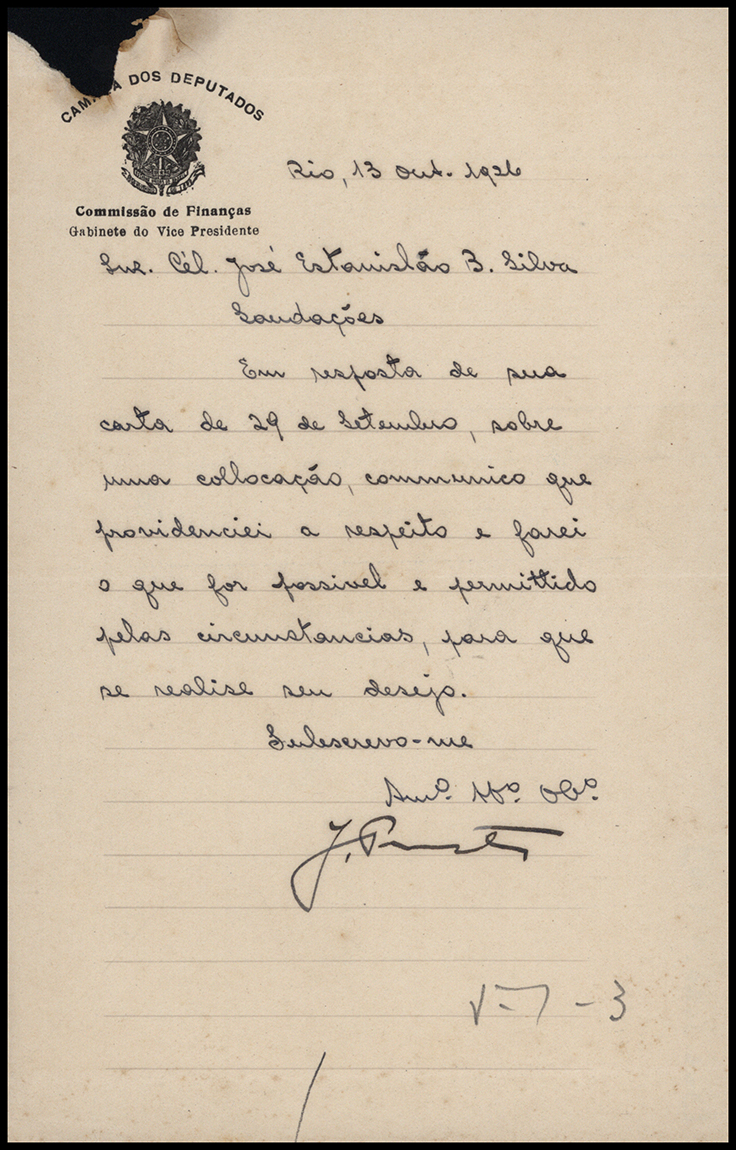 CAMARA DOS DEPUTADOS
Commissão de Finanças
Gabinete do Vice Presidente
Rio, 13 Out. 1926
Snr. Cél. José Estanisláo B. Silva
Saudações
Em resposta de sua
carta de 29 de Setembro, sobre
uma collocação, communico que
providenciei a respeito e farei
o que for possivel e permittido
pelas circumstancias, para que
se realise seu desejo.
Subscrevo-me
Amº. Attº. Obº.
V-7-3